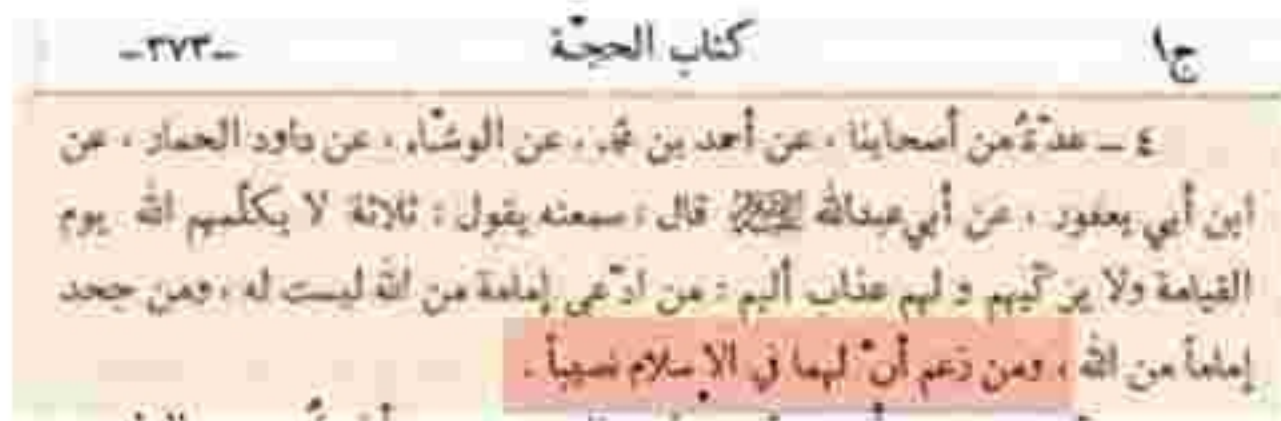 ج١ كتاب الحجّة -٣٧٣-
٤ ــ عدّةٌ من أصحابنا ، عن أحمد بن محمد ، عن الوشّاء ، عن داود الحمار ، عن
ابن أبي يعفور ، عن أبي عبدالله قال : سمعته يقول : ثلاثة لا يكلّمهم الله يوم
القيامة ولا يزكّيهم و لهم عذاب أليم : من ادّعى إمامة من الله ليست له ، ومن جحد
إماماً من الله ، ومن زعم أنّ لهما في الاسلام نصيباً .